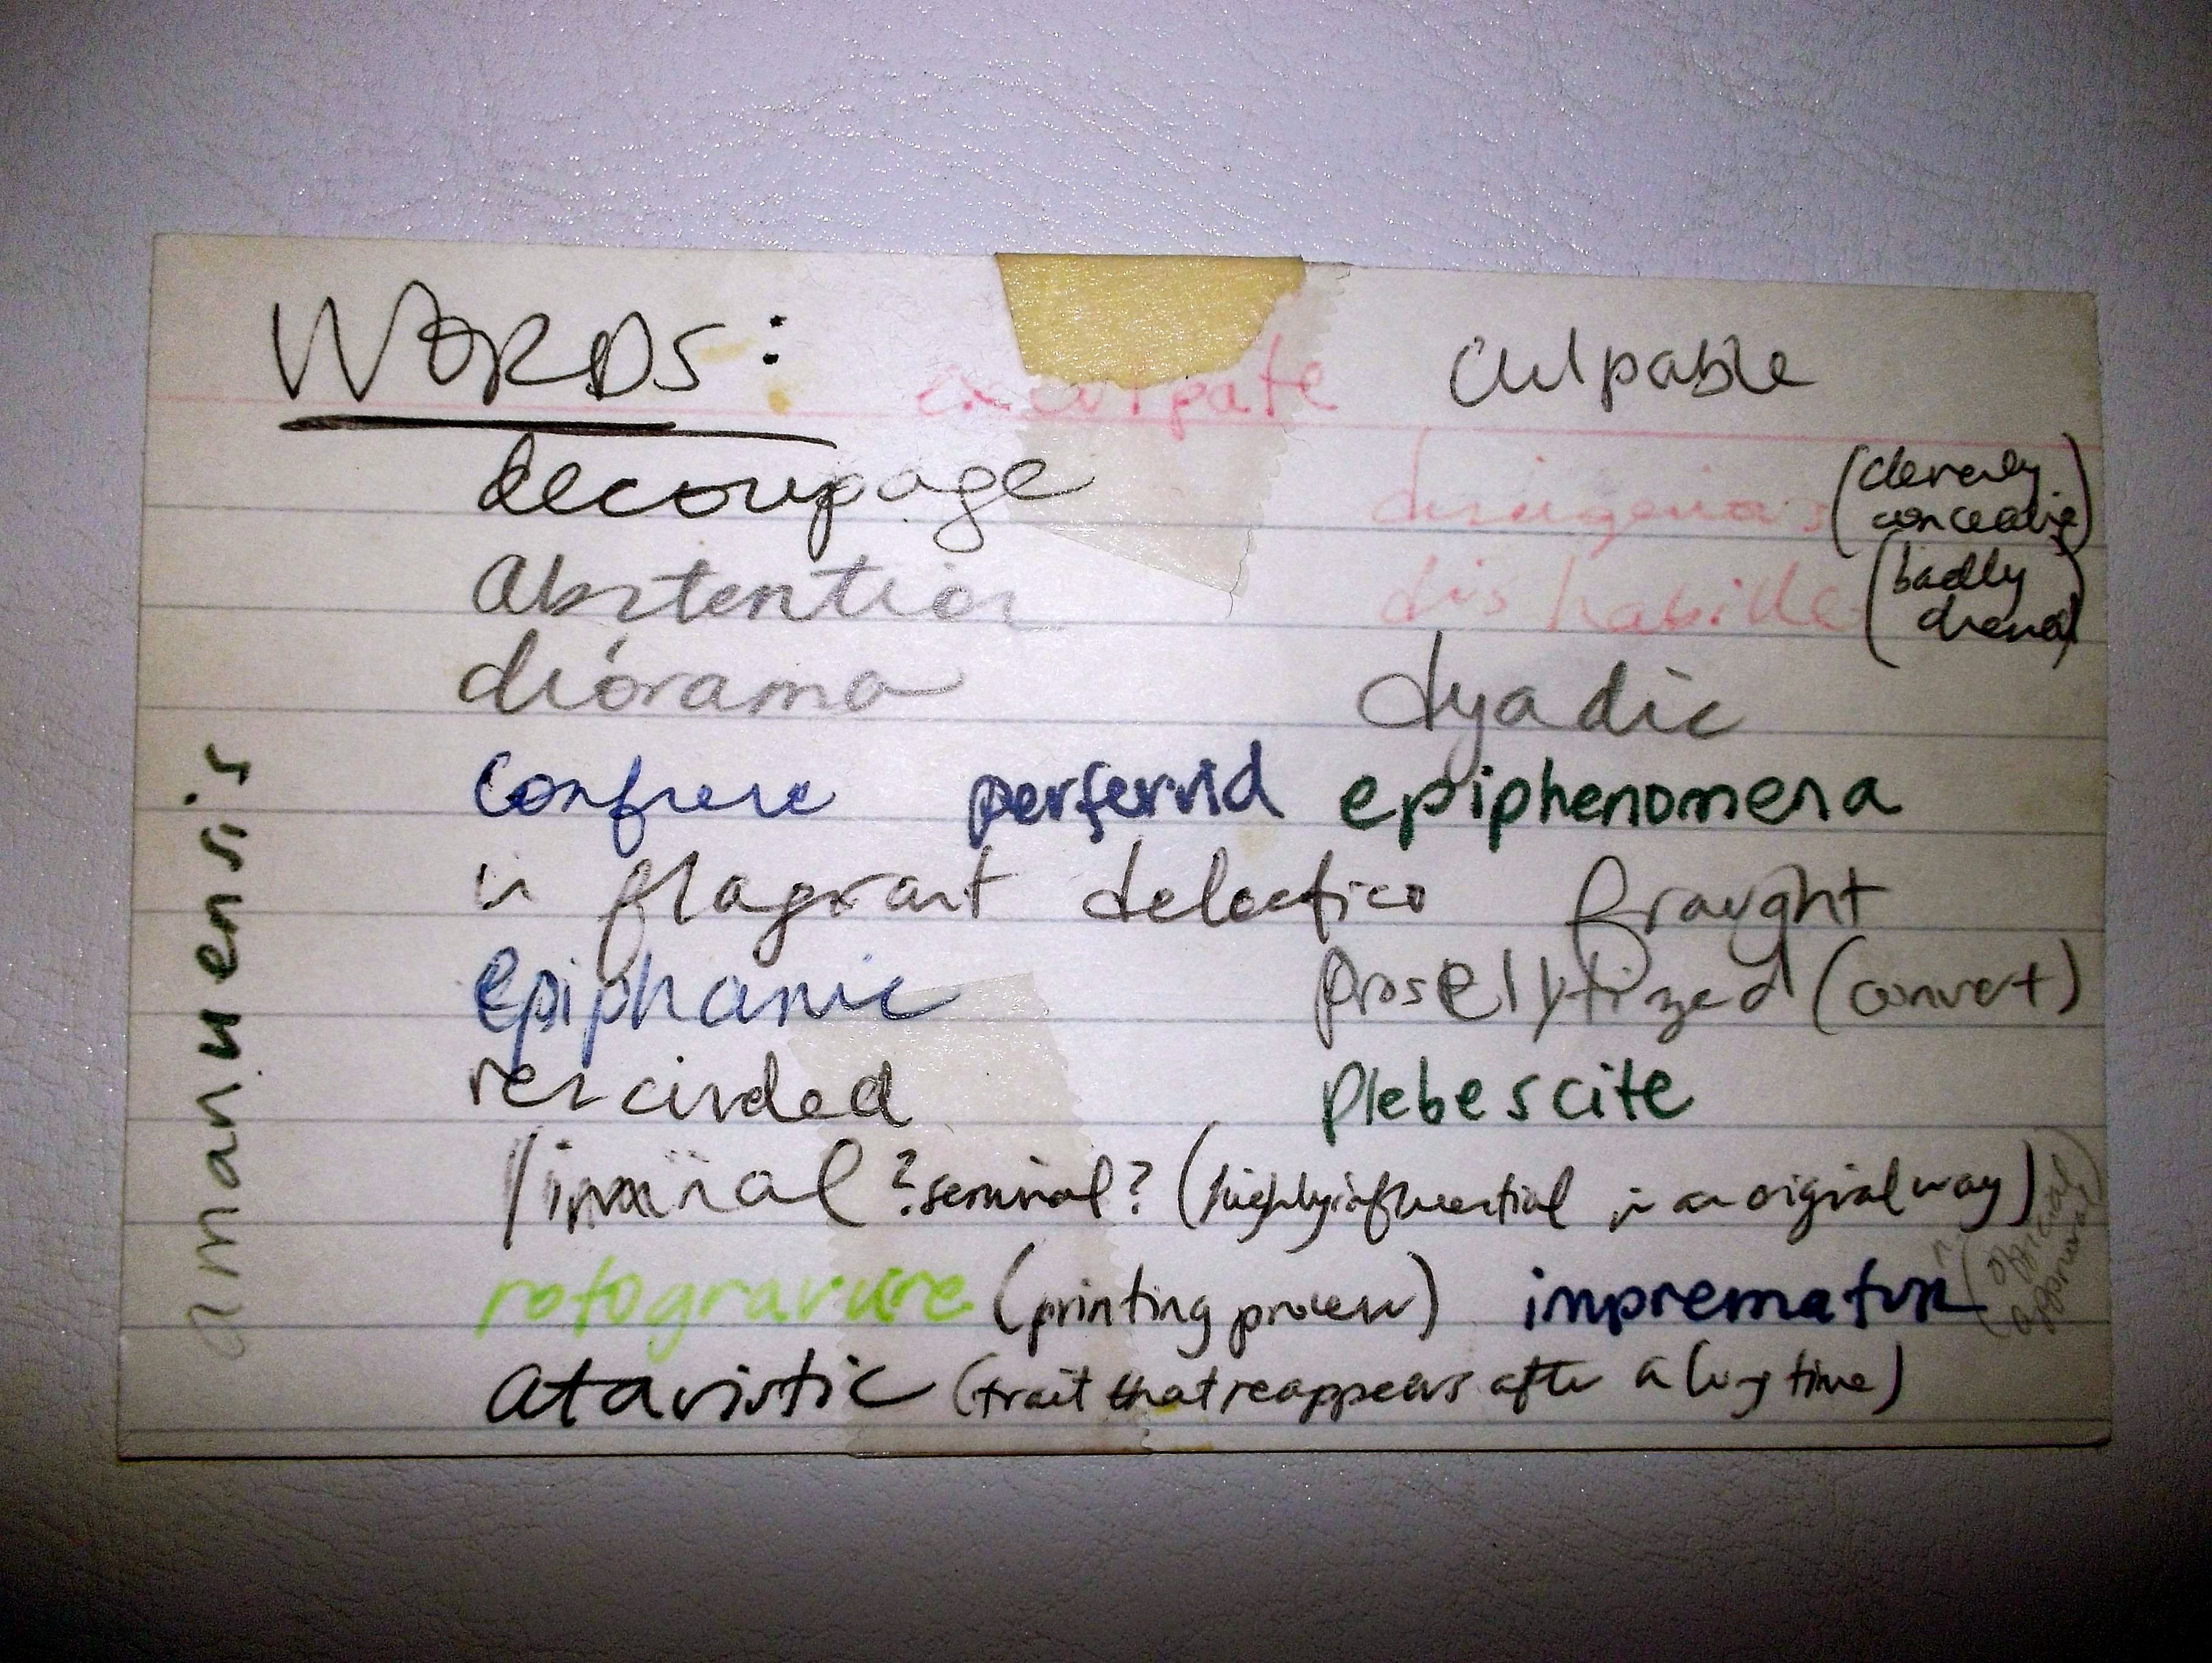 WORDS: exculpate culpable
decoupage (cleverly
concealing)
abstention dishabille (badly
dressed)
diórama dyadic
confrere perfervid epiphenomena
in flagrant delectico fraught
epiphanic proselytized (convert)
rescinded plebescite
liminal ? seminal? (highly influential in an original way)
rotogravure (printing process) imprematur (official
approval)
atavistic (trait that reappears after a long time)
amanuensis